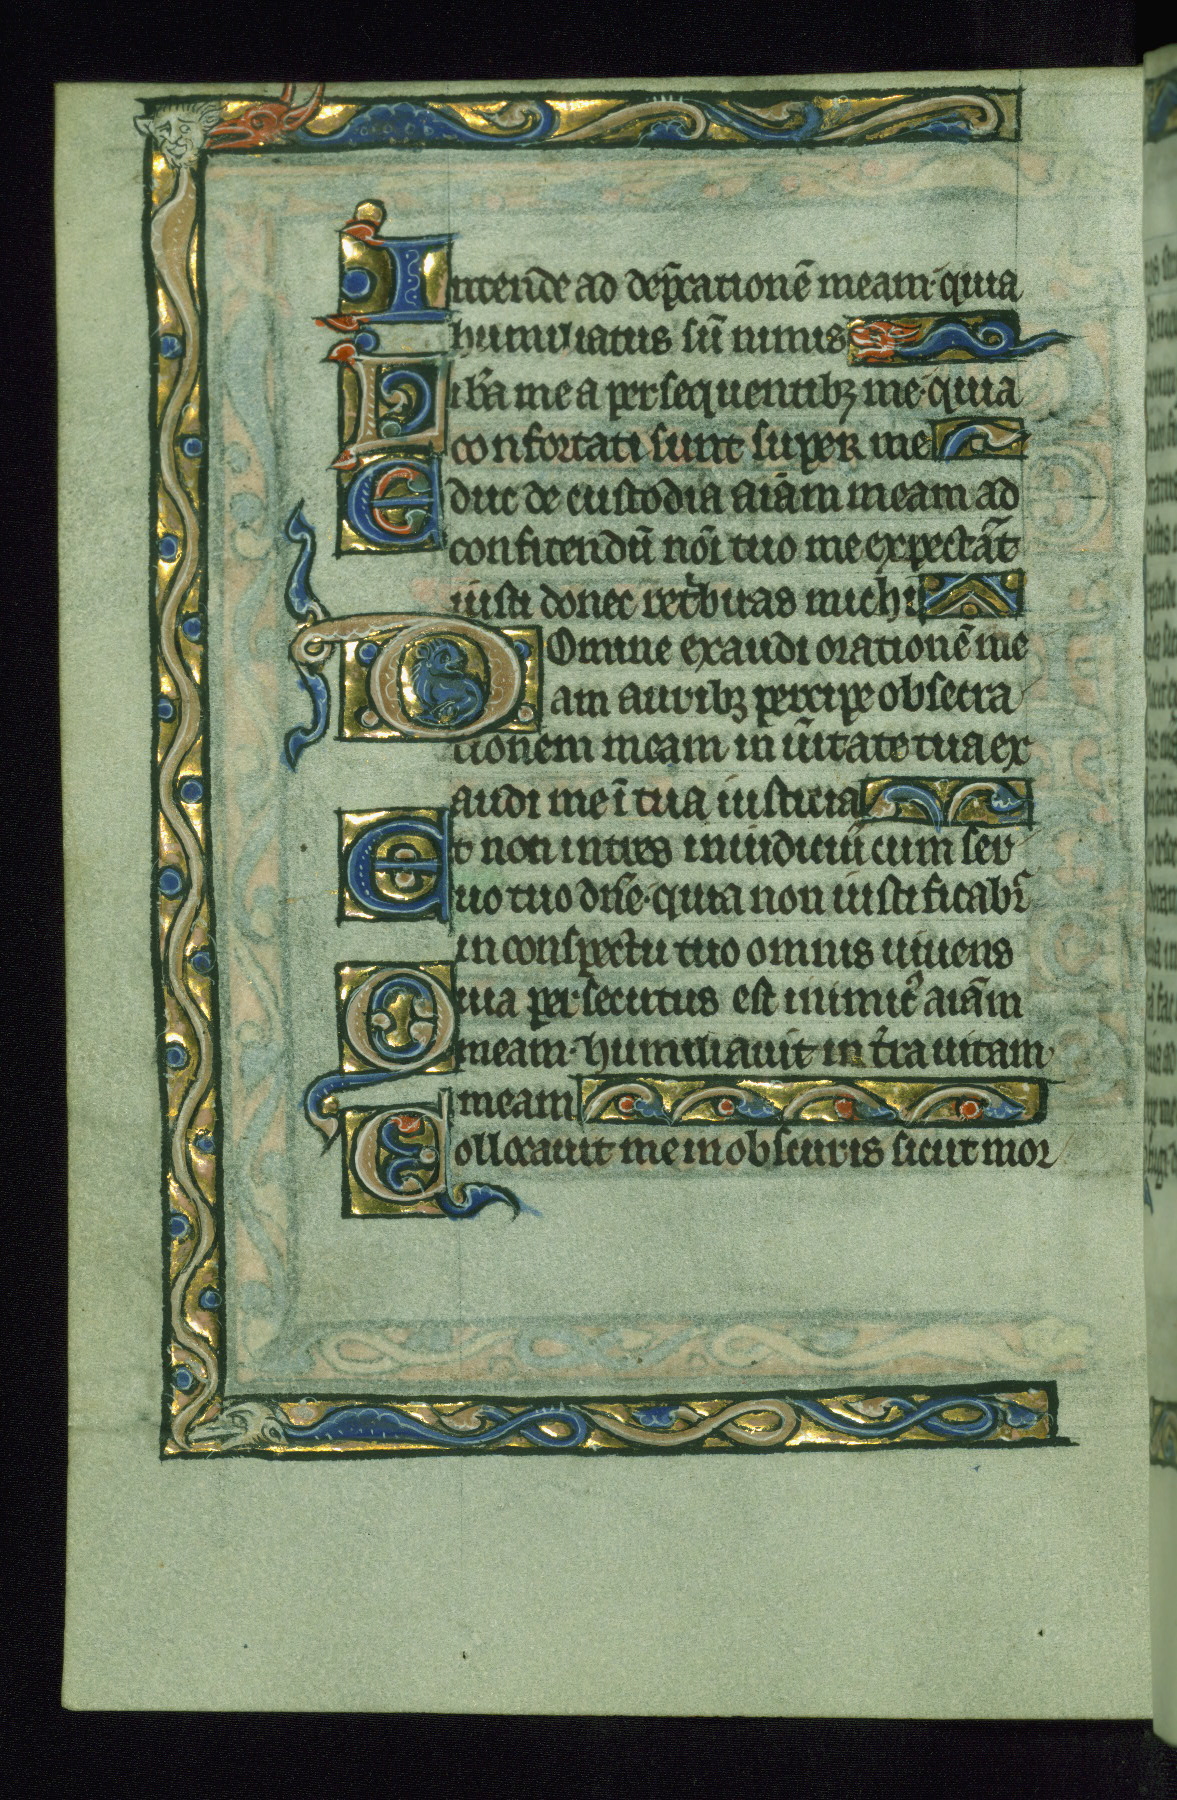 Intende ad dep̄cationē meam· quia
humiliatus sū nimis
Lib̄a me a persequentibꝫ me· quia
confortati sunt super me
Educ de custodia aīam meam ad
confitendū nōi tuo me expectāt
iusti donec ret̄buas michi
Domine exaudi orationē me
am auribꝫ percipe obsecra
tionem meam in ūitate tua ex
audi me ī tua iusticia
Et non intres in iudiciū cum ser
uo tuo dn̄e· quia non iustificabr̄
in conspectu tuo omnis uiuens
Quia persecutus est inimicꝰ aīam
meam· humiliauit in t̄ra uitam
meam
Collocauit me in obscuris sicut mor